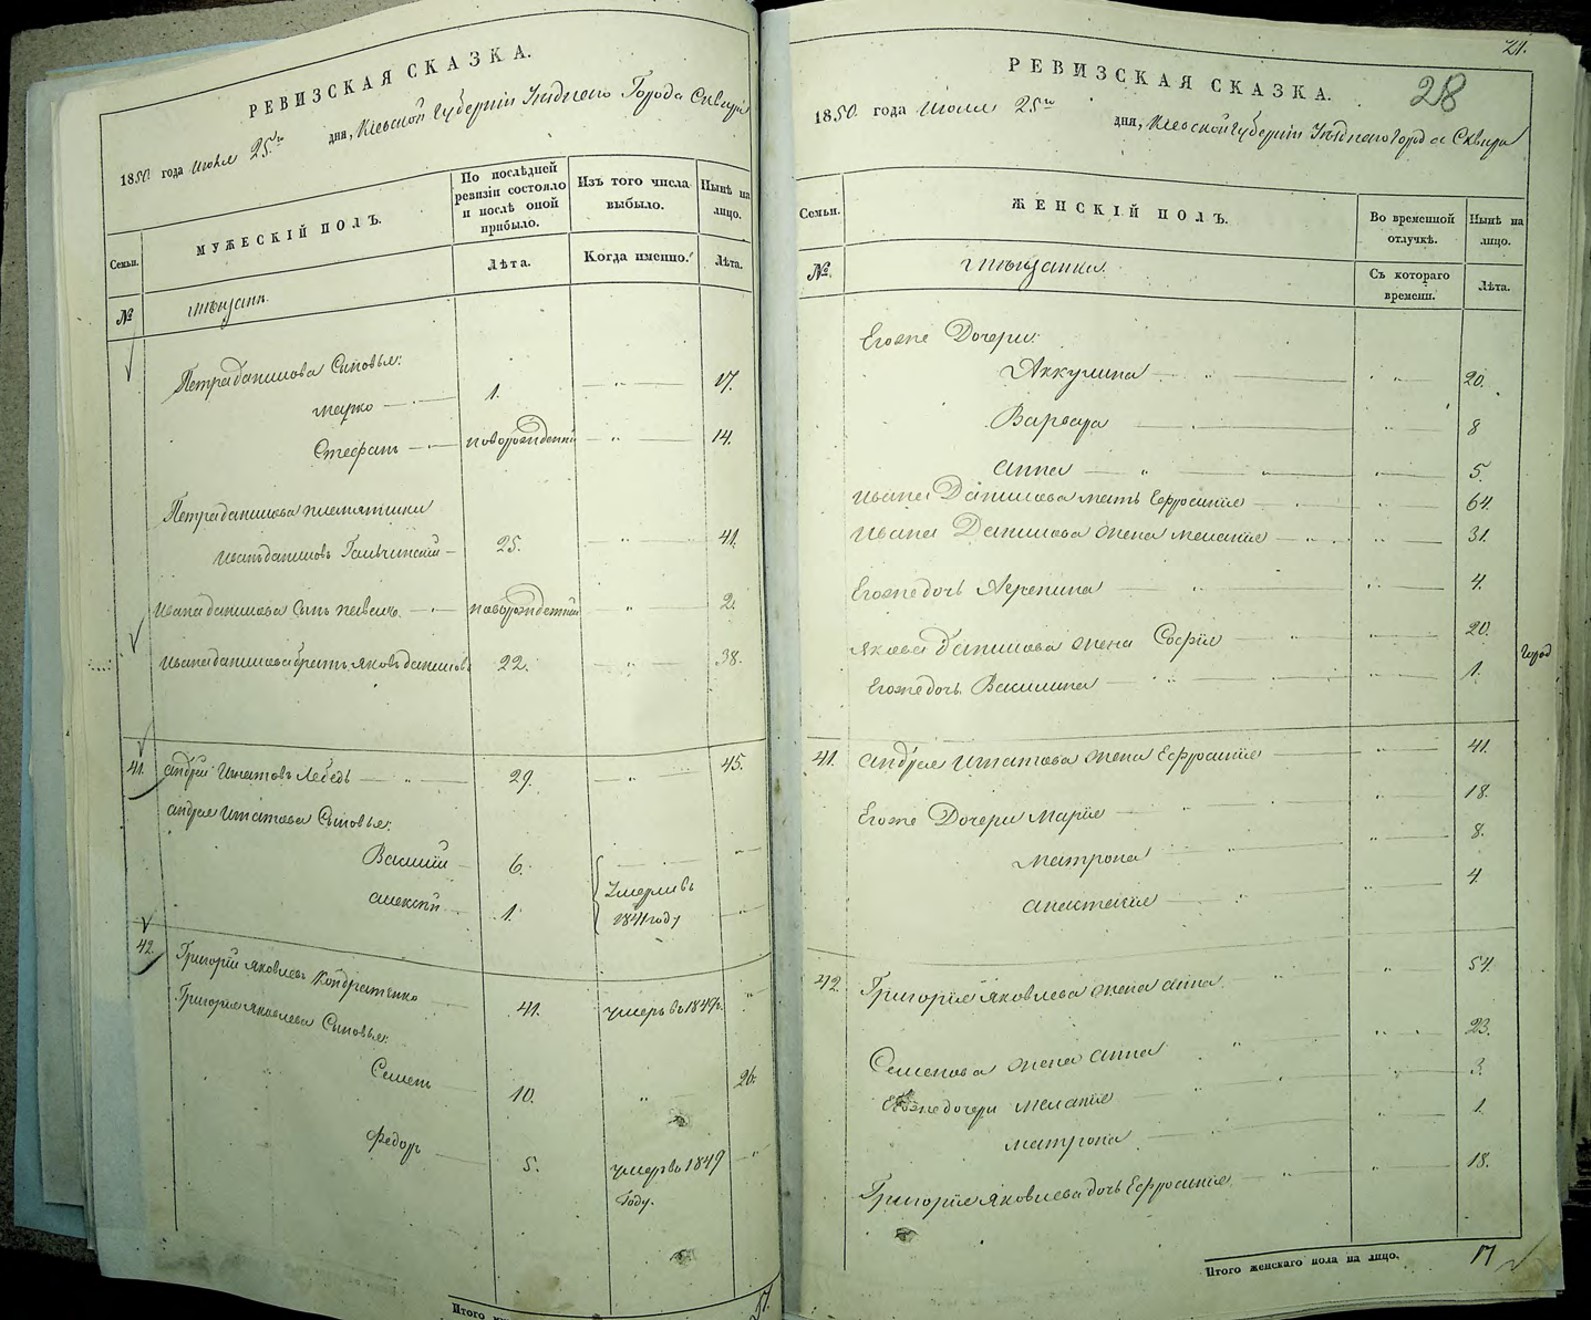 РЕВИЗСКАЯ СКАЗКА.
1850 года июля 25го дня, Кіевской Губерніи Уѣзднаго Города Сквиры
Семьи.
МУЖЕСКІЙ ПОЛЪ.
По послѣдней ревизіи состояло и послѣ оной прибыло.
Изъ того числа выбыло.
Нынѣ на лицо.
№
мѣщанъ.
Лѣта.
Когда именно.
Лѣта.
Петра Данилова Сыновья:
Марко 1. 17.
Стефанъ новорожденный 14.
Петра Данилова племянники
Иванъ Даниловъ 25. 41.
Ивана Данилова Сынъ новорожденный 2.
Ивана Данилова братъ Яковъ Даниловъ 22. 38.
41. Андрей Игнатовъ Лебедь 29. 45.
Андрея Игнатова Сыновья:
Василій 6.
Алексѣй 1.
Умерли въ
1841 году
42. Григорій Яковлевъ Кондратенко 41. умеръ въ 1849 г.
Григорія Яковлева Сыновья:
Семенъ 10. 26.
Федоръ 5. умеръ въ 1849
Году.
Итого
21.
28
РЕВИЗСКАЯ СКАЗКА.
1850. года Июля 25го дня, Кіевской Губерніи Уѣзднаго Города Сквиры
Семьи.
ЖЕНСКІЙ ПОЛЪ.
Во временной отлучкѣ.
Нынѣ на лицо.
№
мѣщанки.
Съ котораго времени.
Лѣта.
Егоже Дочери:
Аккулина 20.
Варвара 8
Анна 5.
Ивана Данилова мать Ефросинія 64.
Ивана Данилова жена Меланія 31.
Егоже дочь Агрепина 4.
Якова Данилова жена Софія 20.
Егоже дочь Василина 1.
Город
41. Андрея Игнатова жена Ефросинія 41.
Егоже Дочери Марія 18.
Матрона 8.
Анастасія 4.
42. Григорія Яковлева жена Анна 54.
Семенова жена Анна 23.
Егоже дочери Меланія 3.
Матрона 1.
Григорія Яковлева дочь Ефросинія 18.
Итого женскаго пола на лицо. 17